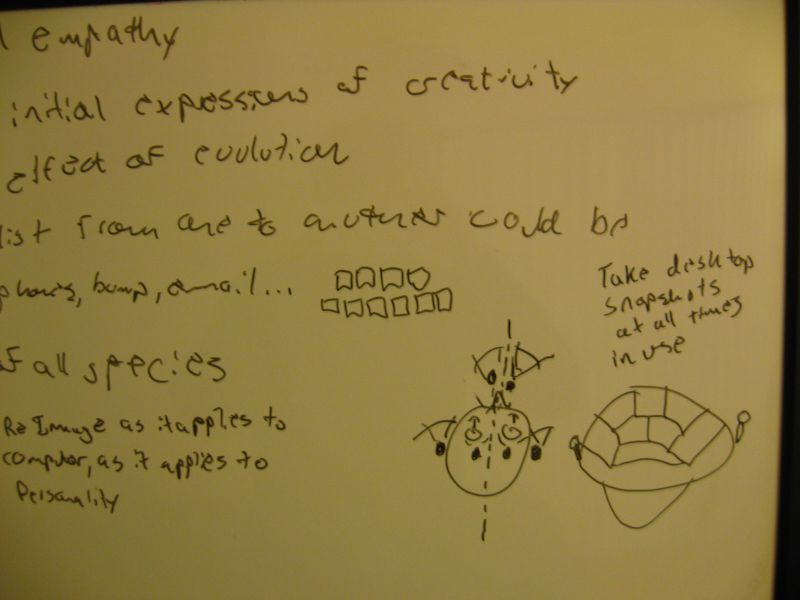 empathy
initial expressions of creativity
effect of evolution
list from one to another could be
phones, bump, email...
of all species
Take desktop
snapshots
at all times
in use
ReImage as it applies to
computer, as it applies to
Personality